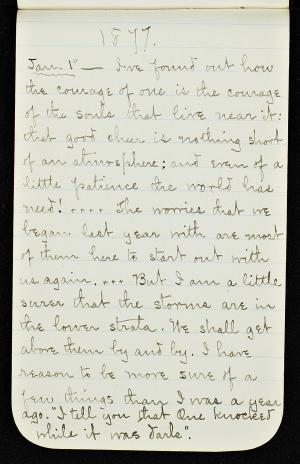 1877.
Jan. 1º— I've found out how
the courage of one is the courage
of the souls that live near it:
that good cheer is nothing short
of an atmosphere; and even of a
little patience the world has
need! .... The worries that we
began last year with are most
of them here to start out with
us again. ... But I am a little
surer that the storms are in
the lower strata. We shall get
above them by and by. I have
reason to be more sure of a
few things than I was a year
ago. "I tell you that One knocked
while it was dark".